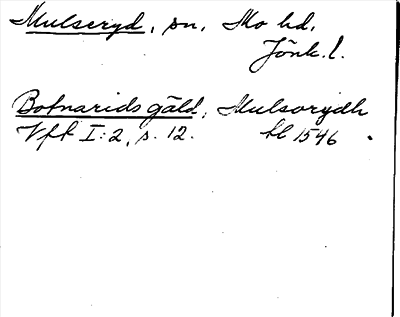 Mulseryd, sn, Mo hd,
Jönk. l.
Botnarids gäld, Mulsorydh
Vfk I:2, s. 12. kl 1546